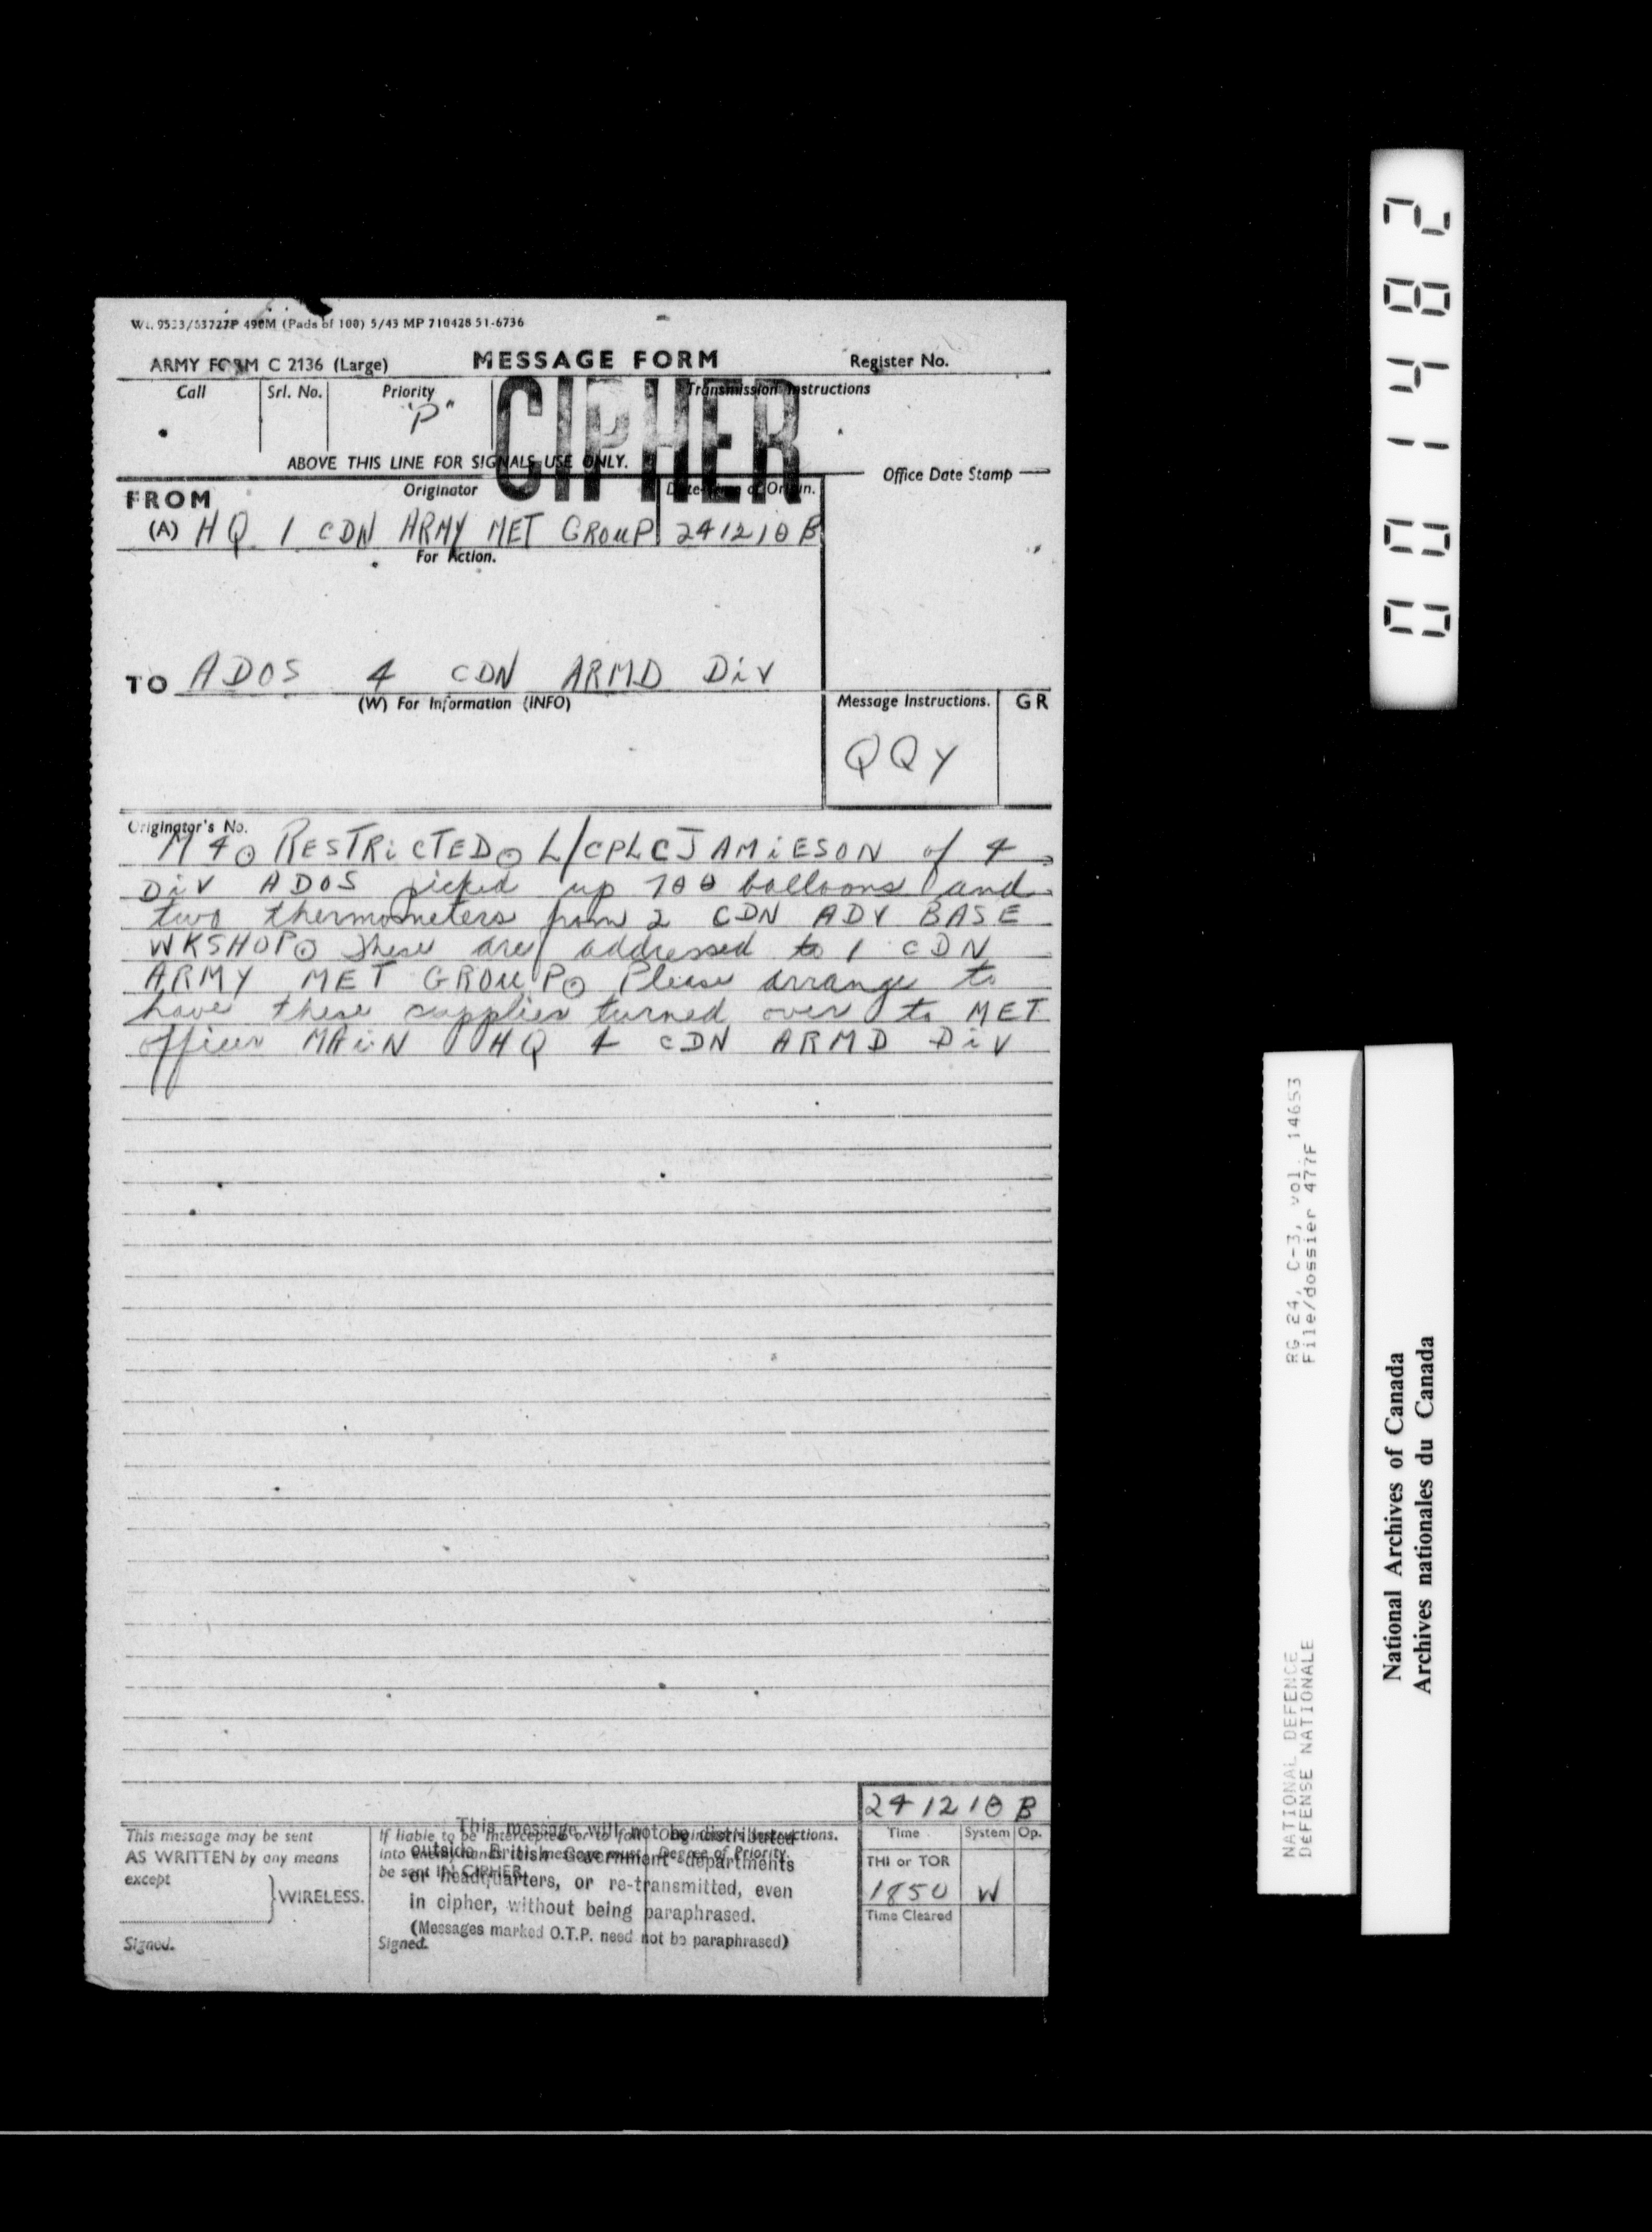 Wt. 9533/53727P 490M (Pads of 100) 5/43 MP 710428 51-6736
ARMY FORM C 2136 (Large) MESSAGE FORM Register No.
Call Srl. No. Priority Transmission Instructions
"P"
CIPHER
ABOVE THIS LINE FOR SIGNALS USE ONLY.
Office Date Stamp
FROM Originator Date-Time of Origin.
(A) HQ 1 CDN ARMY MET GROUP 241210B
For Action.
TO ADOS 4 CDN ARMD Div
(W) For Information (INFO) Message Instructions. GR
QQY
Originator's No.
M4⊙ RESTRiCTED⊙ L/CPL CJAMiESON of 4
Div ADOS picked up 700 balloons and
two thermometers from 2 CDN ADV BASE
WKSHOP⊙ These are addressed to 1 CDN
ARMY MET GROUP⊙ Please arrange to
have these supplies turned over to MET
officer MAiN HQ 4 CDN ARMD Div
241210B
This message may be sent
AS WRITTEN by any means
except
WIRELESS.
Signed.
If liable to be intercepted or to fall
into enemy hands, this message must
be sent IN CIPHER.
Signed.
Originator's Instructions.
Degree of Priority.
This message will not be distributed
outside British Government departments
or headquarters, or re-transmitted, even
in cipher, without being paraphrased.
(Messages marked O.T.P. need not be paraphrased)
Time System Op.
THI or TOR
1850 W
Time Cleared
001482
RG 24, C-3, vol. 14653
File/dossier 477F
NATIONAL DEFENCE
DEFENSE NATIONALE
National Archives of Canada
Archives nationales du Canada